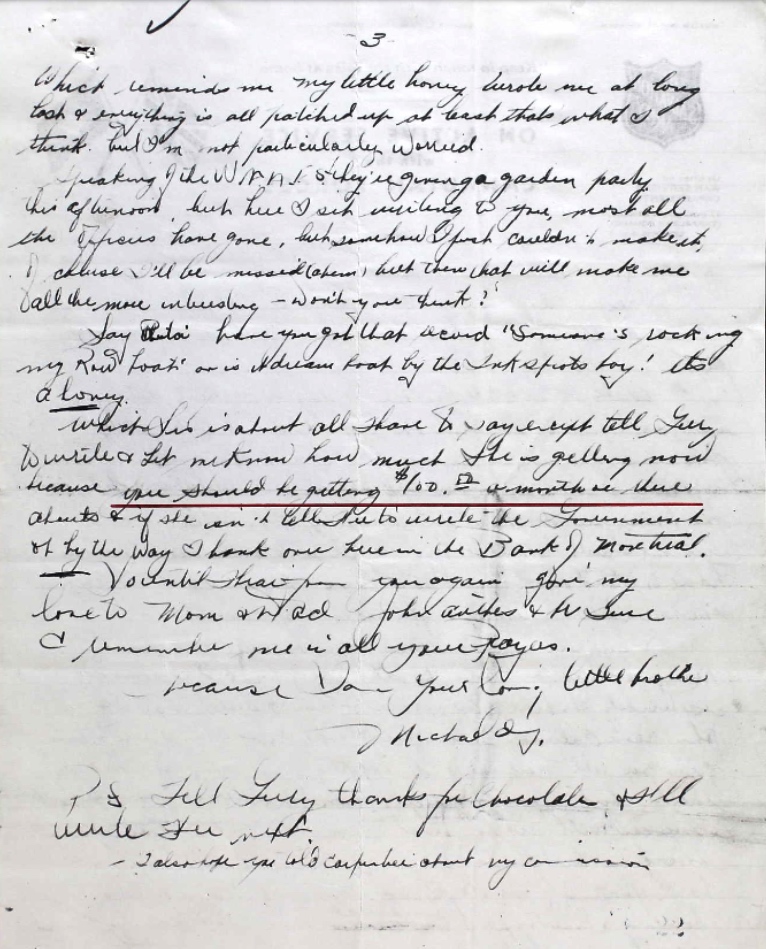 - 3
Which reminds me my little honey wrote me at long
last & everything is all patched up at least thats what I
think. but I'm not particularly worried.
Speaking of the W.A.A.F.S they're giving a garden party
this afternoon, but here I sit writing to you, most all
the Officers have gone, but somehow I just couldn't make it,
of course I'll be missed (ahem) but then that will make me
all the more interesting - won't you think?
Say have you got that record "Someone's rocking
my Row boat" or is A dream boat by the Ink spots boy! its
a honey.
Which is about all I have to say except tell
to write & let me know how much she is getting now
because you should be getting $100.00 a month or there
abouts & if she isn't tell her to write the Government
oh by the way I bank over here in the Bank of Montreal.
So until I hear from you again give my
love to Mom & Dad John &
& remember me in all your Prayers.
because I am Your Loving little brother
Michael J.
P S Tell thanks for Chocolate & I'll
write her next.
- I also hope you told about my commission